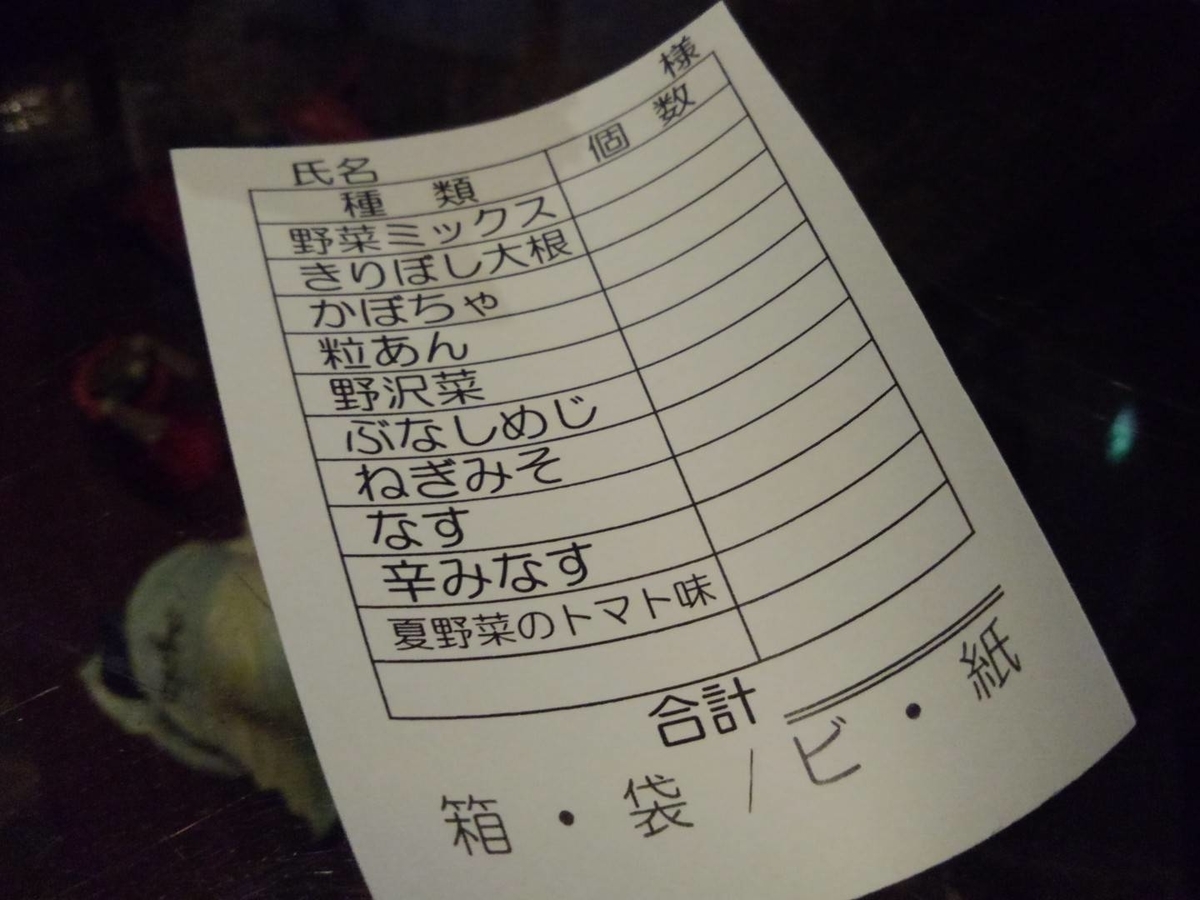 氏名 様
種類 個数
野菜ミックス
きりぼし大根
かぼちゃ
粒あん
野沢菜
ぶなしめじ
ねぎみそ
なす
辛みなす
夏野菜のトマト味
合計
箱・袋/ビ・紙